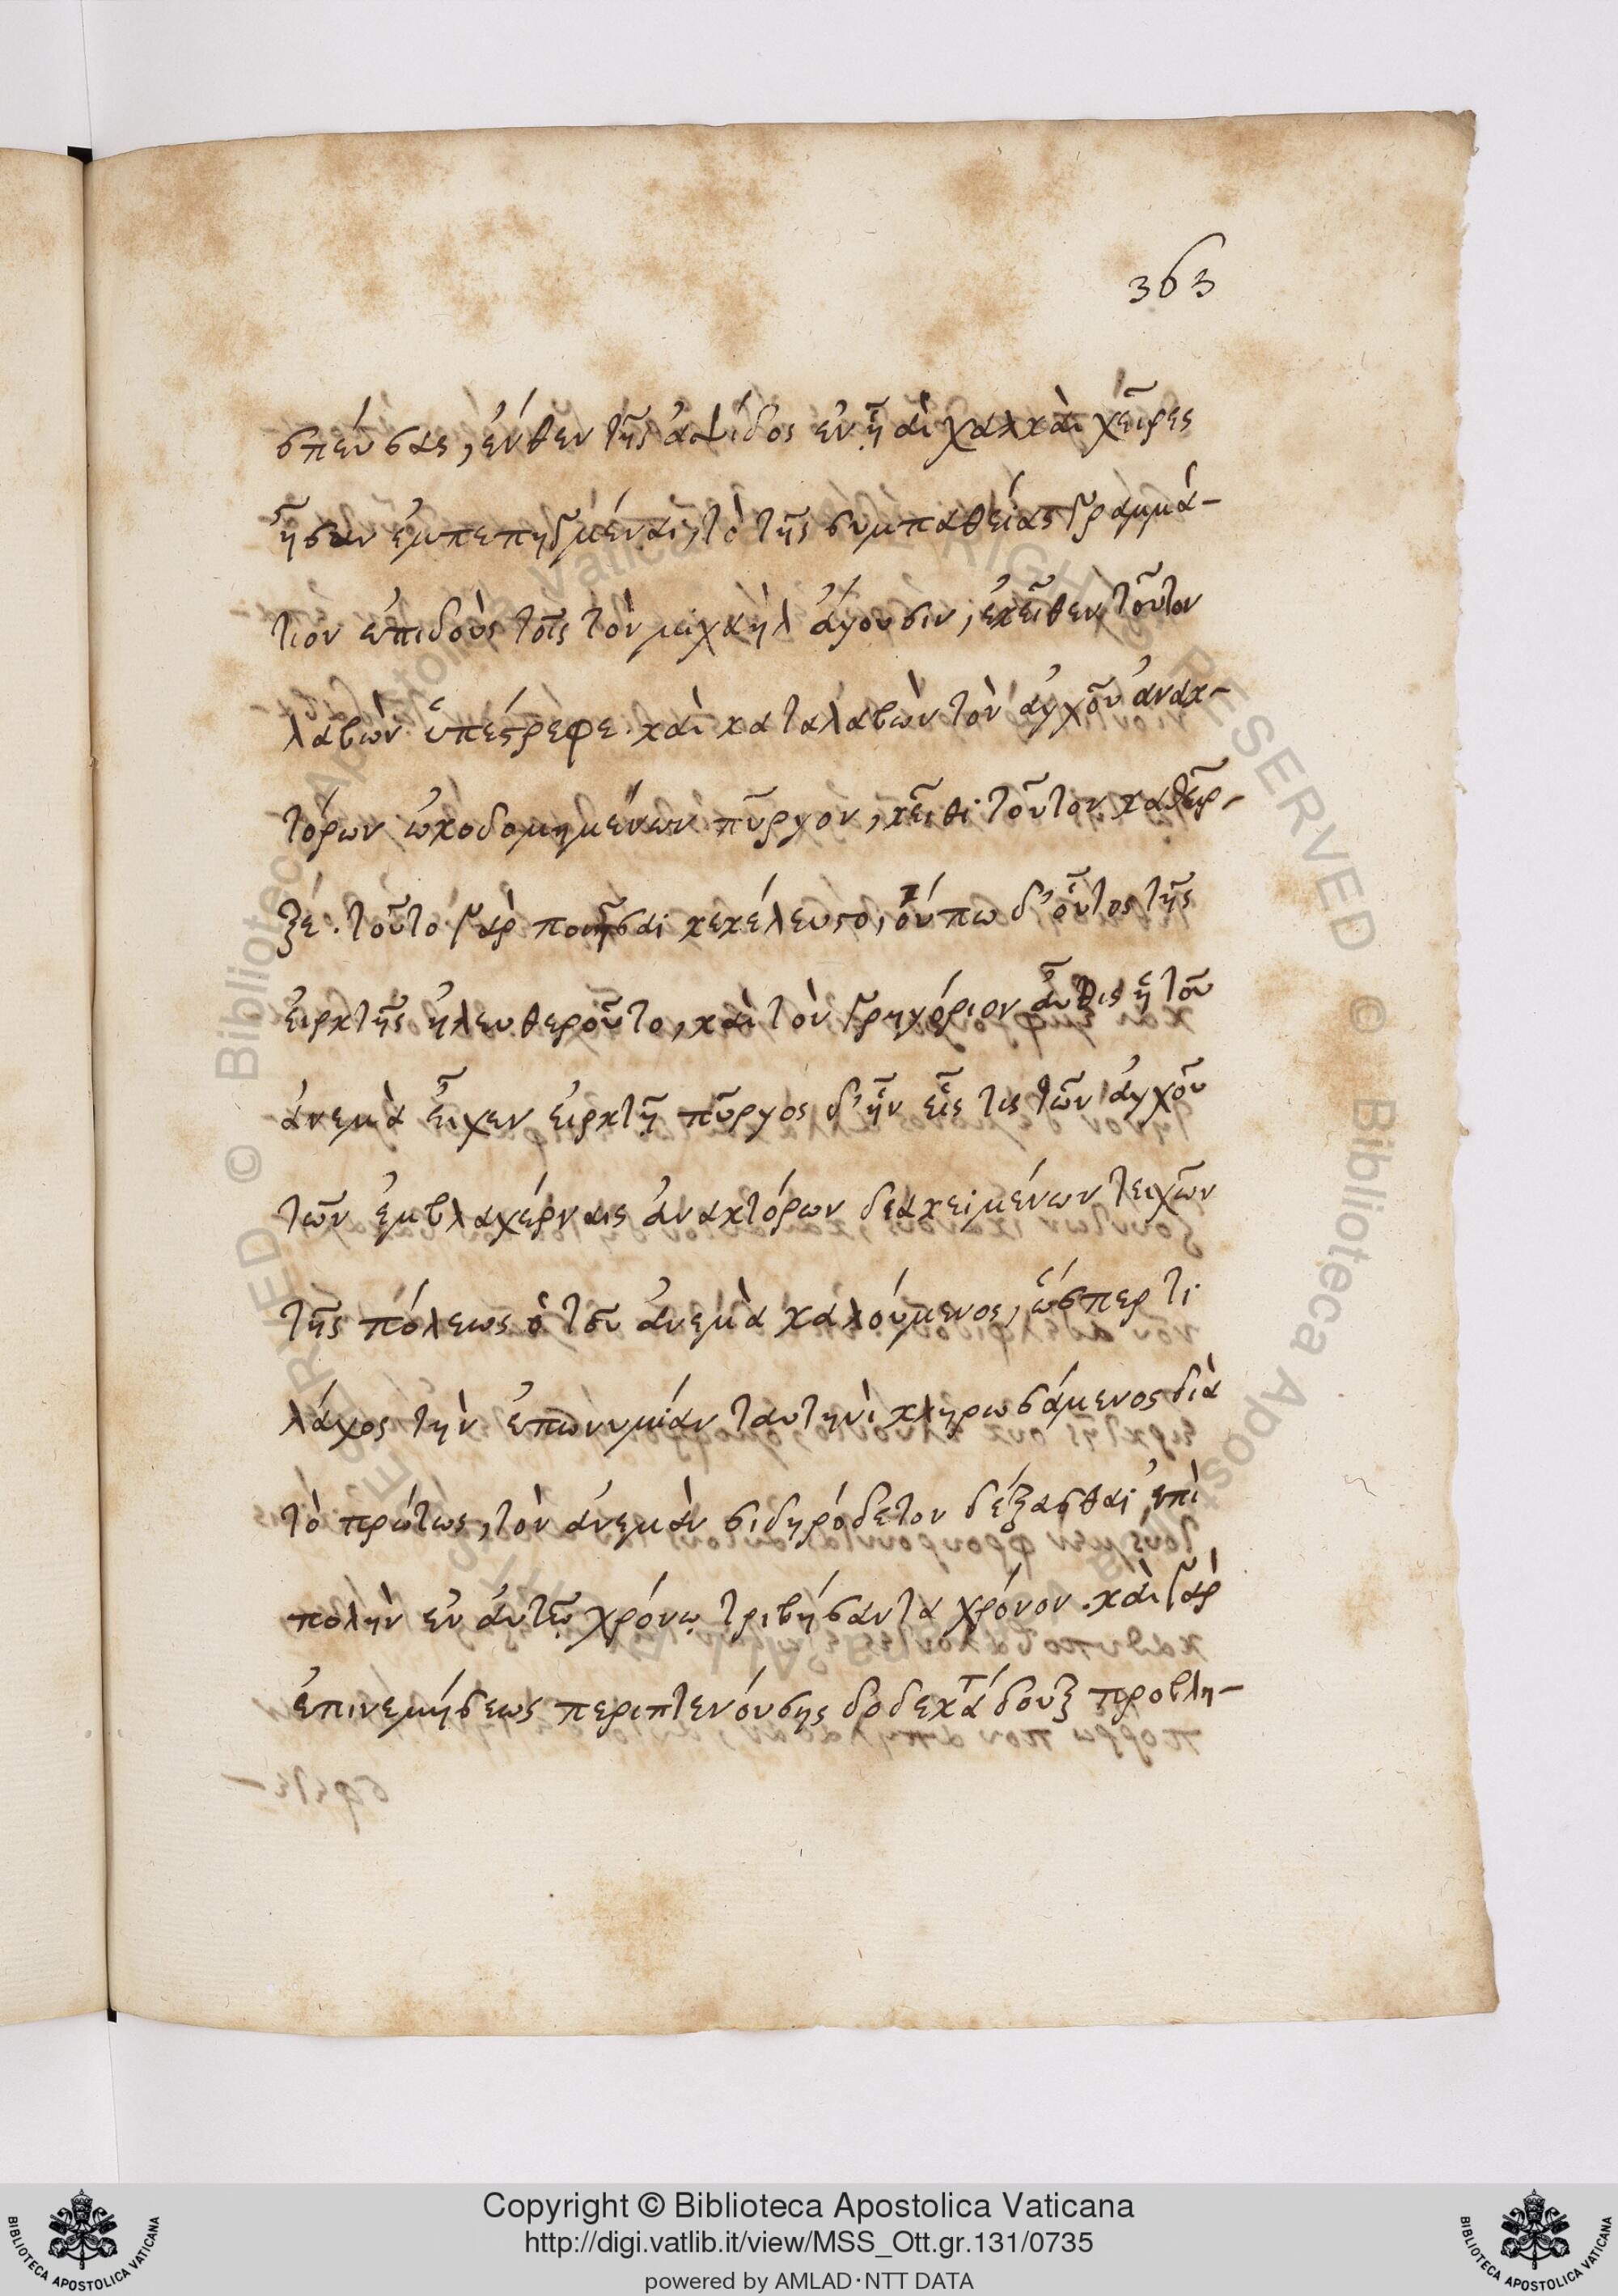 363
σπεύσας, ἔνθεν τῆς ἁψίδος ἐν ᾗ αἱ χαλκαῖ χεῖρες
ἦσαν ἐμπεπηγμέναι, τὸ τῆς συμπαθείας γραμμά-
τιον ἐπιδοὺς τοῖς τὸν μιχαὴλ ἄγουσιν, ἐκεῖθεν τοῦτον
λαβὼν ὑπέστρεφε. καὶ καταλαβὼν τὸν ἀγχοῦ ἀνακ-
τόρων ὠκοδομημένων πῦργον, κεῖθι τοῦτον καθεῖρ-
ξέ. τοῦτο γὰρ ποιῆσαι κεκέλευστο, οὔπω δ' οὗτος τῆς
εἰρκτῆς ἠλευθεροῦτο, καὶ τὸν γρηγόριον αὖθις ἡ τοῦ
ἀνεμὰ εἶχεν εἰρκτῆ πῦργος δ' ἦν εἷς τις τῶν ἀγχοῦ
τῶν ἐμβλαχέρναις ἀνακτόρων διακειμένων τειχῶν
τῆς πόλεως ὁ τοῦ ἀνεμὰ καλούμενος, ὥσπερ τι
λάχος τὴν ἐπωνυμίαν ταυτηνὶ κληρωσάμενος διὰ
τὸ πρώτως, τὸν ἀνεμὰν σιδηρόδετον δέξασθαι ἐπὶ
πολὴν ἐν αὐτῷ χρόνῳ τριβήσαντα χρόνον. καὶ γὰρ
ἐπινεμήσεως περιπτενούσης δοδεκάτ δουξ προβλη-
Copyright © Biblioteca Apostolica Vaticana
http://digi.vatlib.it/view/MSS_Ott.gr.131/0735
powered by AMLAD·NTT DATA
BIBLIOTECA APOSTOLICA VATICANA
BIBLIOTECA APOSTOLICA VATICANA